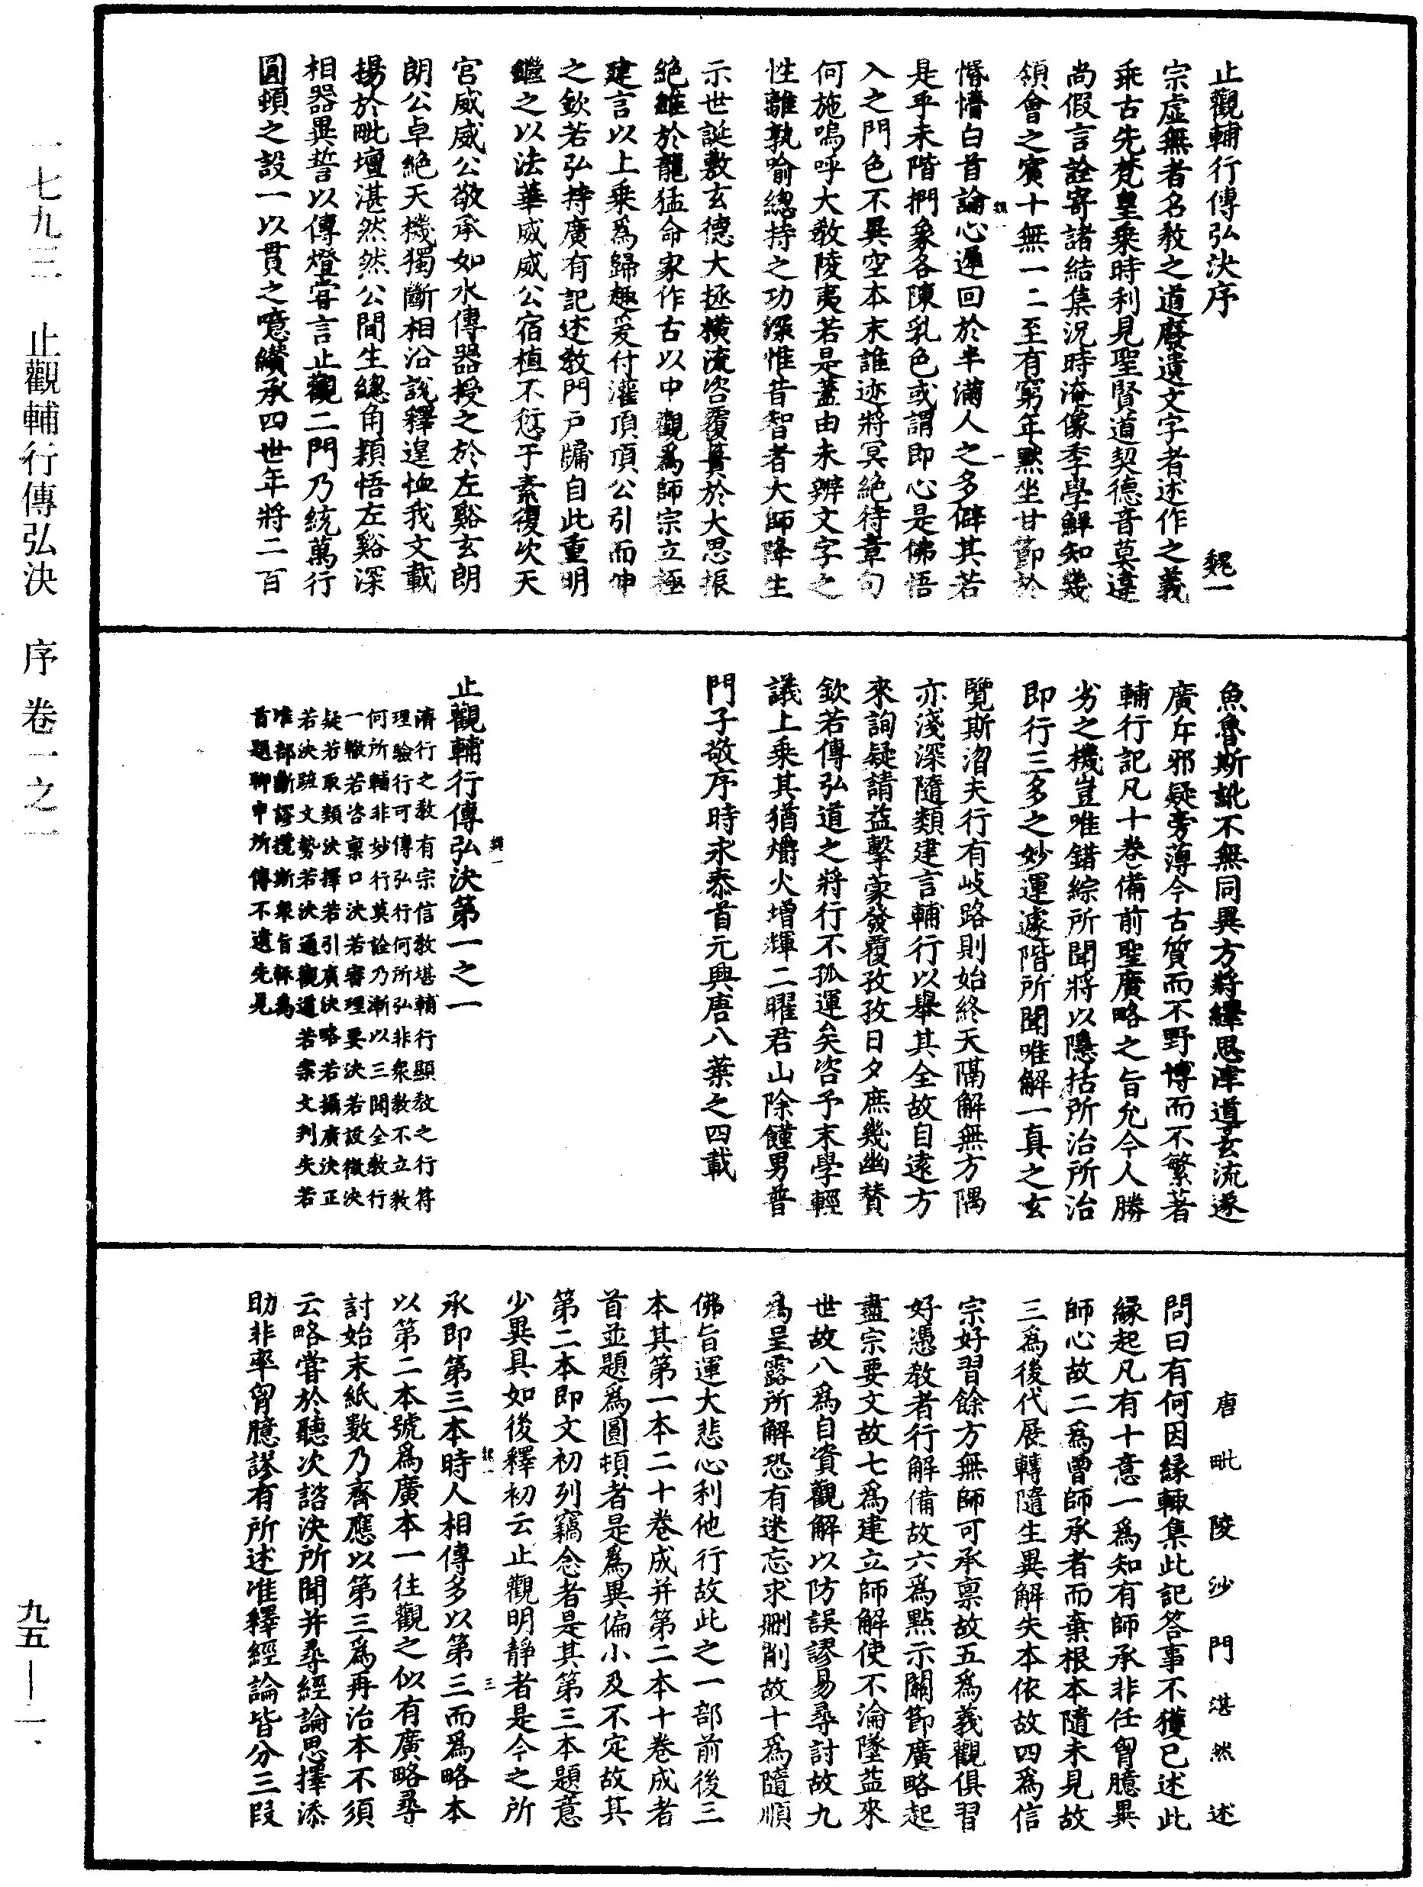 止觀輔行傳弘決序　魏一
宗虛無者名教之道廢遺文字者述作之義
乖古先梵皇乘時利見聖賢道契德音莫違
尚假言詮寄諸結集況時淹像季學鮮知幾
領會之賓十無一二至有窮年默坐甘節於
惛懵白首論心遲回於半滿人之多僻其若
是乎未階捫象各陳乳色或謂即心是佛悟
入之門色不異空本末誰迹將冥絕待章句
何施嗚呼大教陵夷若是蓋由未辨文字之
性離孰喻總持之功深惟昔智者大師降生
示世誕敷玄德大拯橫流咨覆蕢於大思振
絕維於龍猛命家作古以中觀為師宗立極
建言以上乘為歸趣爰付灌頂頂公引而伸
之欽若弘持廣有記述教門戶牖自此重明
繼之以法華威威公宿植不愆于素復次天
宮威威公敬承如水傳器授之於左谿玄朗
朗公卓絕天機獨斷相沿說釋遑恤我文載
揚於毗壇湛然然公間生總角頴悟左谿深
相器異誓以傳燈嘗言止觀二門乃統萬行
圓頓之設一以貫之噫纘承四世年將二百
魚魯斯訛不無同異方將繹思津導玄流遂
廣斥邪疑旁薄今古質而不野博而不繁著
輔行記凡十卷備前聖廣略之旨允今人勝
劣之機豈唯錯綜所聞將以隱括所治所治
即行三多之妙運遽階所聞唯解一真之玄
覽斯沼夫行有岐路則始終天隔解無方隅
亦淺深隨類建言輔行以舉其全故自遠方
來詢疑請益擊蒙發覆孜孜日夕庶幾幽贊
欽若傳弘道之將行不孤運矣咨予末學輕
議上乘其猶爝火增輝二曜君山除饉男普
門子敬序時永泰首元興唐八葉之四載
止觀輔行傳弘決第一之一
濟行之教有宗信教堪輔行顯教之行符
理驗行可傳弘行何所弘非衆教不立教
何所輔非妙行莫詮乃漸以三聞全教行
一轍若咨稟口決若審理要決若設徵決
疑若取類決擇若引廣決略若攝廣決正
若決疏文勢若決通觀道若案文判失若
准部斷謬攬斯衆旨稣為
首題聊申所傳不違先見
唐毗陵沙門湛然述
問曰有何因緣輙集此記答事不獲已述此
緣起凡有十意一為知有師承非任胷臆異
師心故二為曾師承者而棄根本隨末見故
三為後代展轉隨生異解失本依故四為信
宗好習餘方無師可承稟故五為義觀俱習
好憑教者行解備故六為點示關節廣略起
盡宗要文故七為建立師解使不淪墜益來
世故八為自資觀解以防誤謬易尋討故九
為呈露所解恐有迷忘求刪削故十為隨順
佛旨運大悲心利他行故此之一部前後三
本其第一本二十卷成并第二本十卷成者
首並題為圓頓者是為異偏小及不定故其
第二本即文初列竊念者是其第三本題意
少異具如後釋初云止觀明靜者是今之所
承即第三本時人相傳多以第三而為略本
以第二本號為廣本一往觀之似有廣略尋
討始末紙數乃齊應以第三為再治本不須
云略嘗於聽次諮決所聞并尋經論思擇添
助非率胷臆謬有所述准釋經論皆分三段
一七九三　止觀輔行傳弘決　序　卷一之一
九五—二